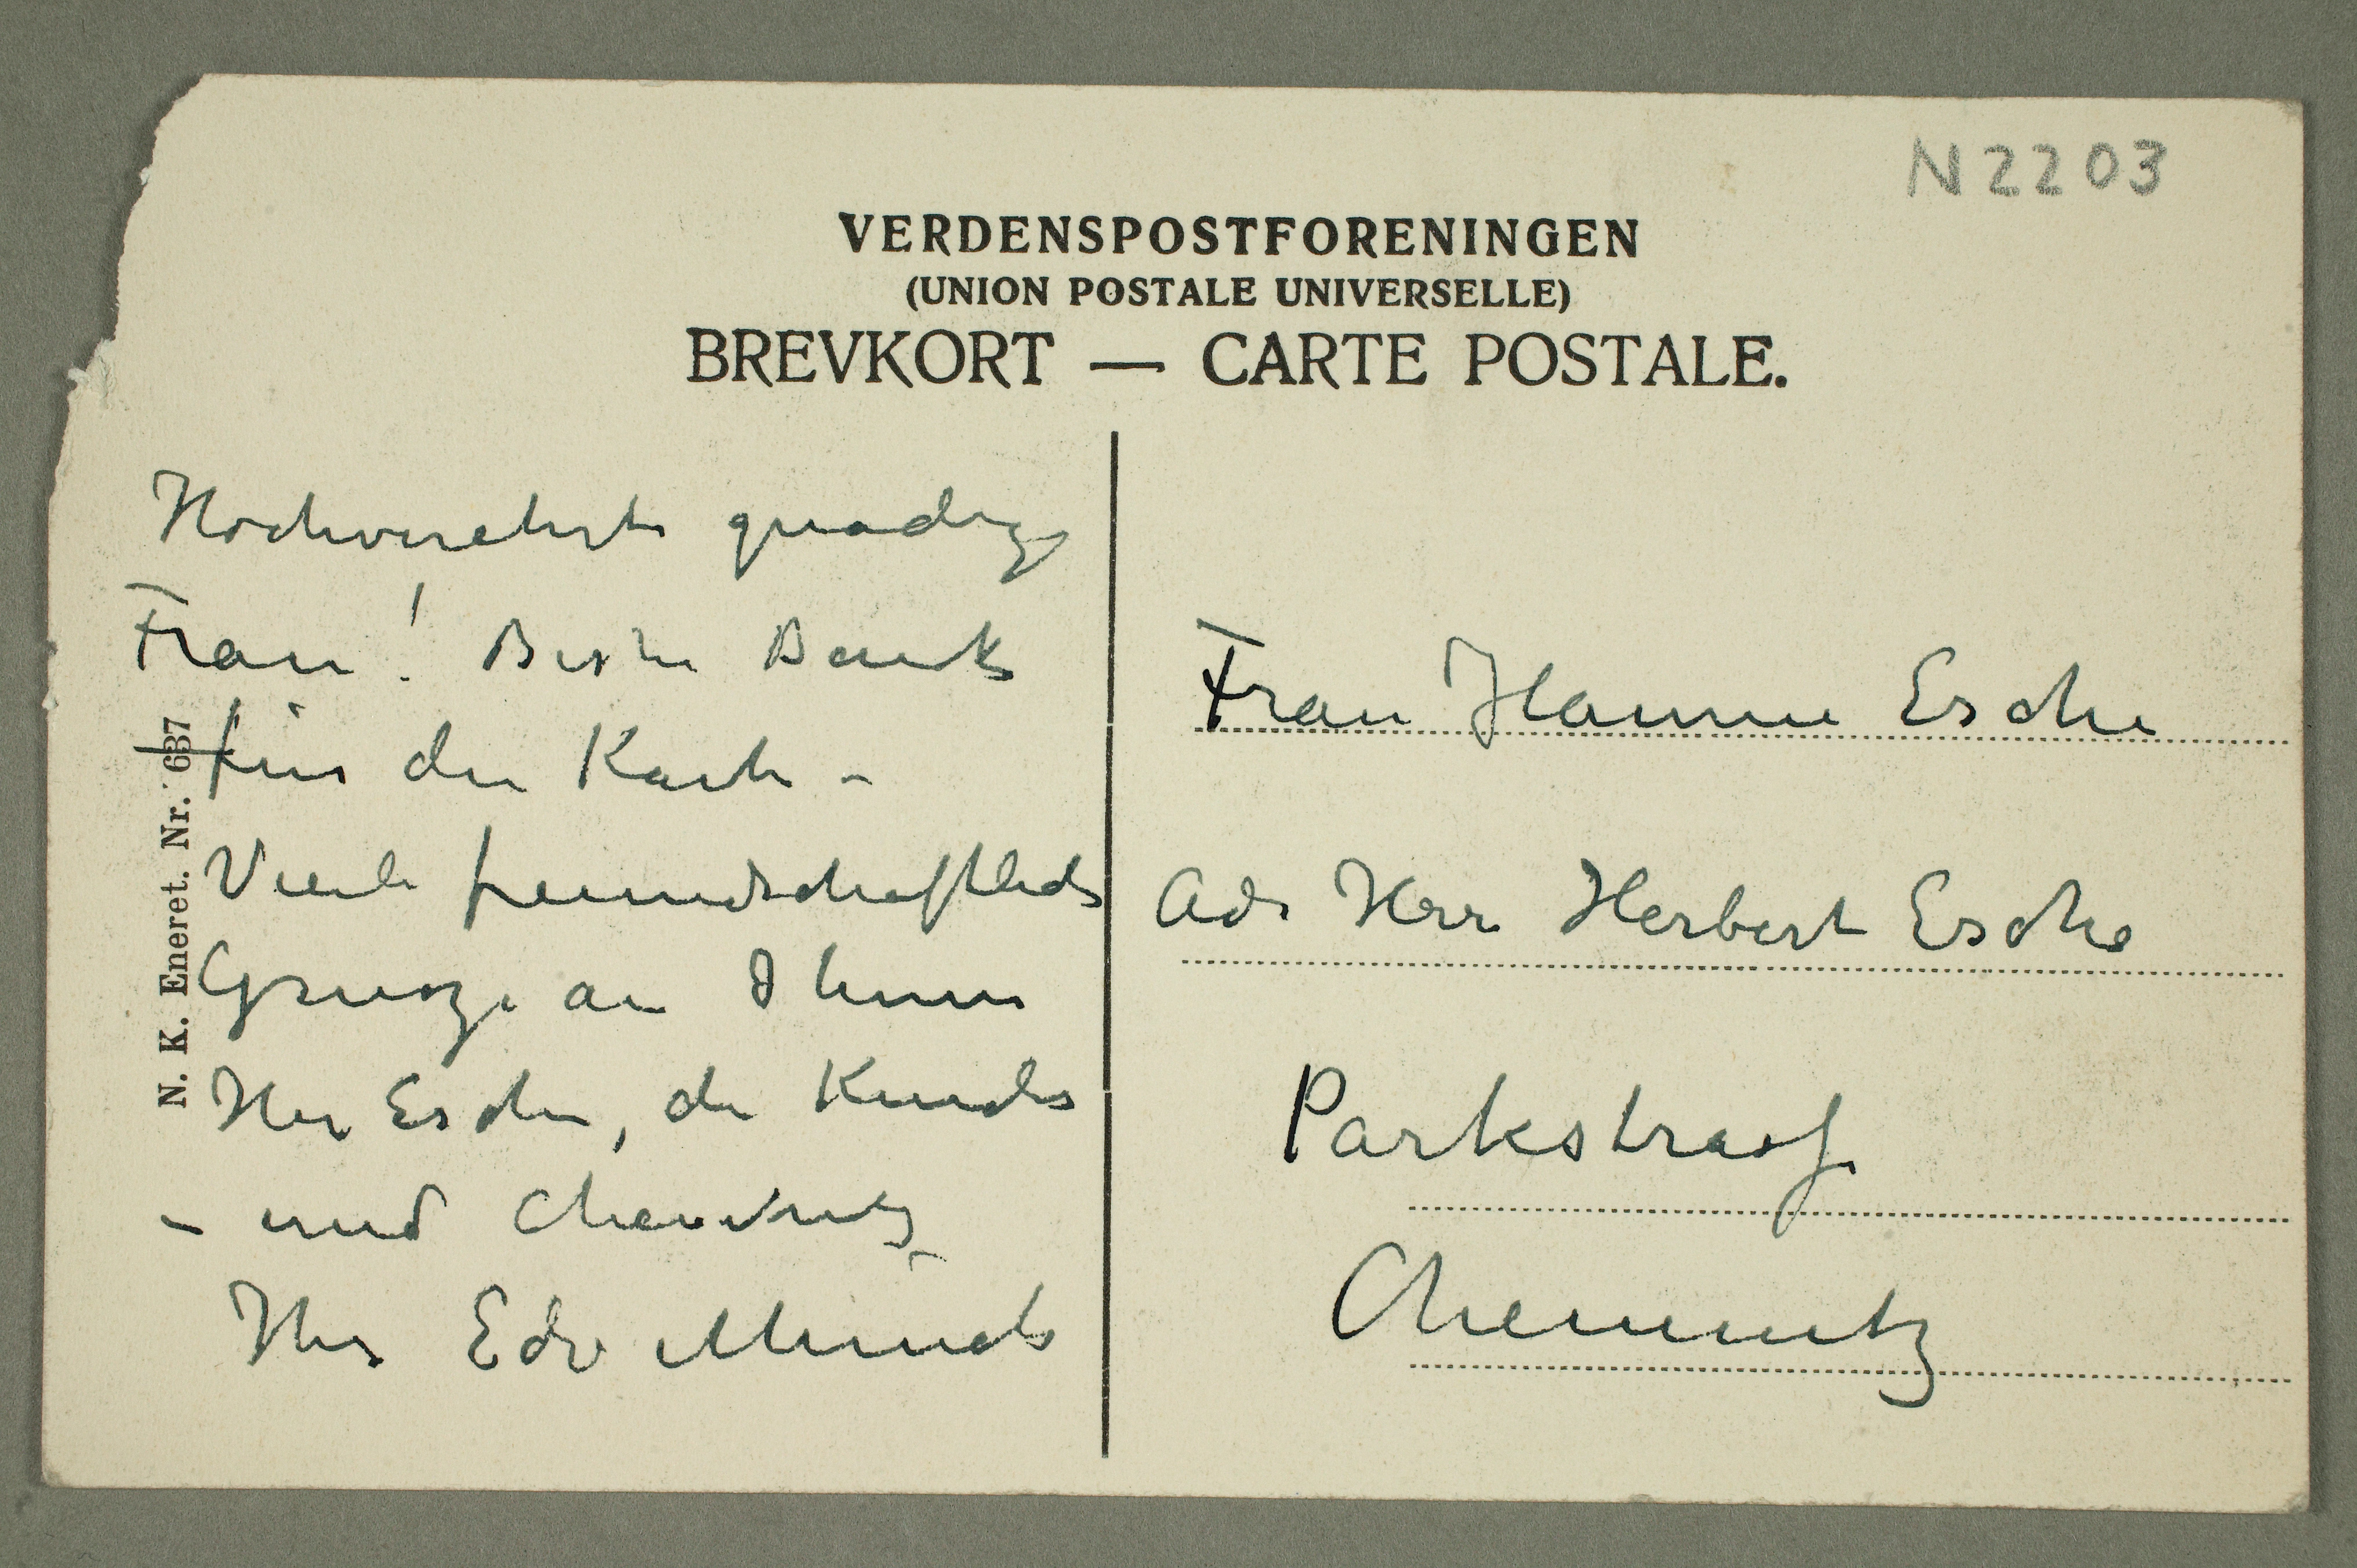 N 2203
VERDENSPOSTFORENINGEN
(UNION POSTALE UNIVERSELLE)
BREVKORT — CARTE POSTALE.
Hochverehrte gnädige
Frau! Besten Dank
für die Karte –
Viele freundschaftliche
Grusze an Ihnen
Herr Esche, die Kinder
– und Chemnitz –
Ihr Edv Munch
N. K. Eneret. Nr. 637
Frau Hanni Esche
Adr Herr Herbert Esche
Parkstrasse
Chemnitz